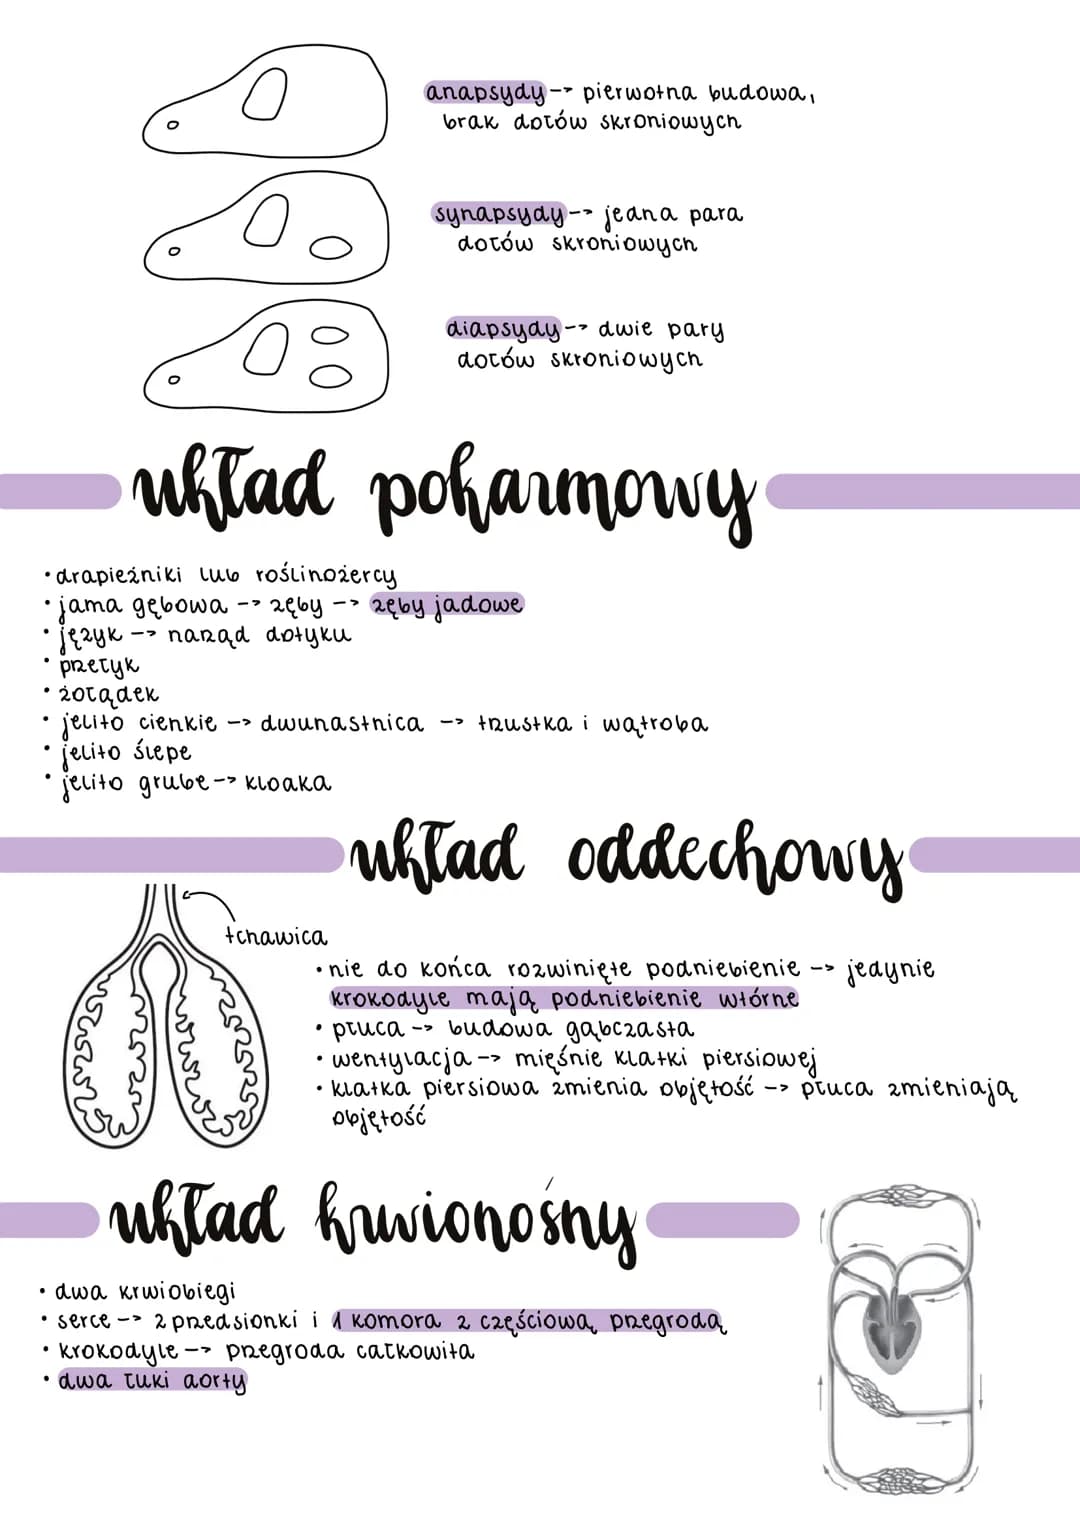 anapsydy --> pierwotna budowa,
brak dołów skroniowych
synapsydy --> jedna para
dołów skroniowych
diapsydy --> dwie pary
dołów skroniowych
układ pokarmowy
• drapieżniki lub roślinożercy
• jama gębowa --> zęby --> zęby jadowe
• język --> narząd dotyku
• przełyk
• żołądek
• jelito cienkie --> dwunastnica --> trzustka i wątroba
• jelito ślepe
• jelito grube --> kloaka
układ oddechowy
tchawica
• nie do końca rozwinięte podniebienie --> jedynie
krokodyle mają podniebienie wtórne
• płuca --> budowa gąbczasta
• wentylacja --> mięśnie klatki piersiowej
• klatka piersiowa zmienia objętość --> płuca zmieniają
objętość
układ krwionośny
• dwa krwiobiegi
• serce --> 2 przedsionki i 1 komora z częściową przegrodą
• krokodyle --> przegroda całkowita
• dwa łuki aorty